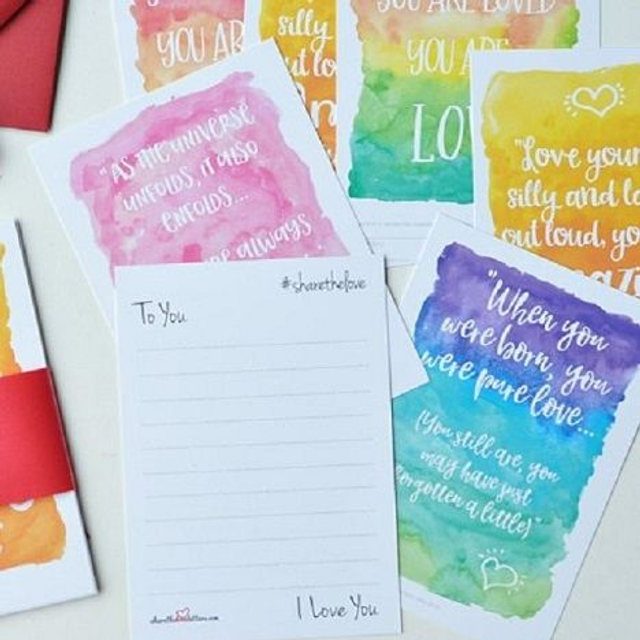 YOU
silly
out lo
YOU ARE LOVED
YOU ARE
LO
"AS THE UNIVERSE
UNFOLDS, IT ALSO
ENFOLDS...
always
"Love your
silly and
out loud, yo
"When you
were born, you
were pure love...
(You still are, you
may have just
forgotten a little)"
#sharethelove
To You
I Love You